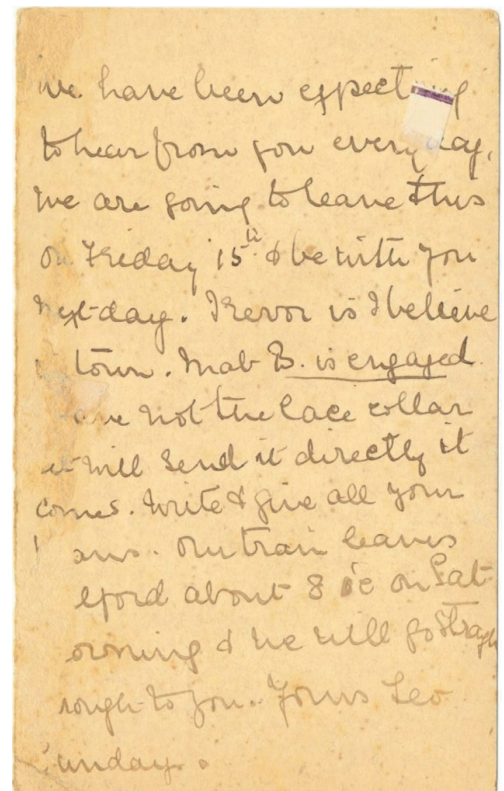 we have been expecting
to hear from you every day.
We are going to leave this
on Friday 15th & be with you
next day. Trevor is I believe
town. Mab B. is engaged
have not the lace collar
will send it directly it
comes. Write & give all your
ans. Our train leaves
eford about 8 o'c on Sat
orning & we will go straigh
rough to you. Yours Leo
Sunday.